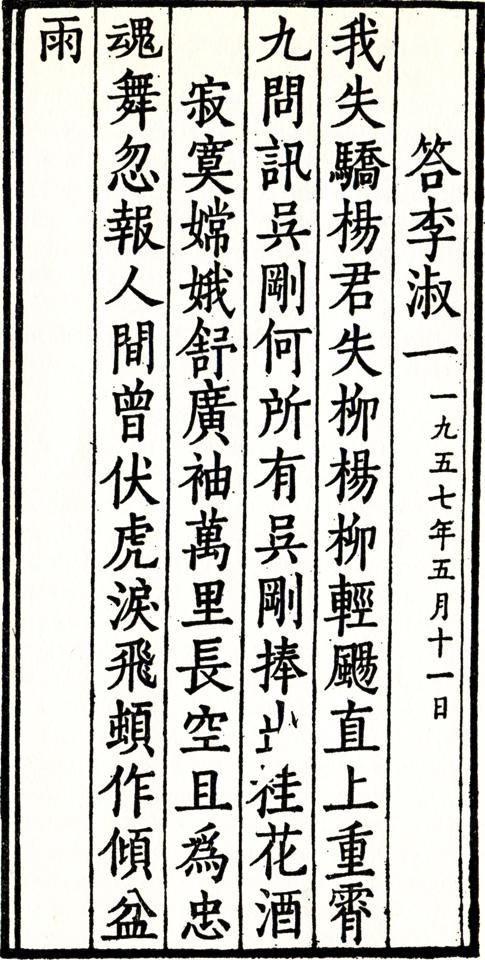 答李淑一 一九五七年五月十一日
我失驕楊君失柳楊柳輕颺直上重霄
九問訊吳剛何所有吳剛捧出桂花酒
寂寞嫦娥舒廣袖萬里長空且爲忠
魂舞忽報人間曾伏虎淚飛頓作傾盆
雨